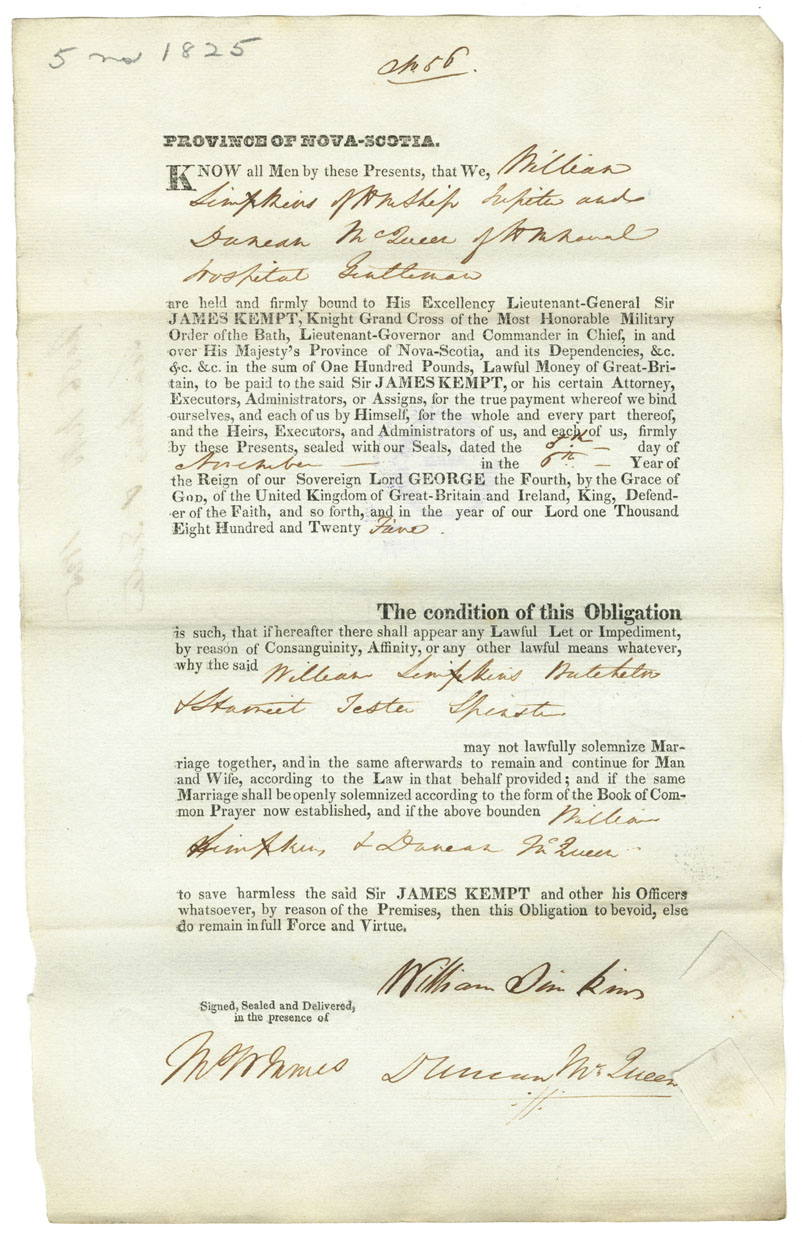 5 no 1825
No 56.
PROVINCE OF NOVA-SCOTIA.
KNOW all Men by these Presents, that We, William
Simpkins of HM Ship Jupiter and
Duncan McQueen of HM Naval
Hospital Gentleman
are held and firmly bound to His Excellency Lieutenant-General Sir
JAMES KEMPT, Knight Grand Cross of the Most Honorable Military
Order of the Bath, Lieutenant-Governor and Commander in Chief, in and
over His Majesty's Province of Nova-Scotia, and its Dependencies, &c.
&c. &c. in the sum of One Hundred Pounds, Lawful Money of Great-Bri-
tain, to be paid to the said Sir JAMES KEMPT, or his certain Attorney,
Executors, Administrators, or Assigns, for the true payment whereof we bind
ourselves, and each of us by Himself, for the whole and every part thereof,
and the Heirs, Executors, and Administrators of us, and each of us, firmly
by these Presents, sealed with our Seals, dated the 5th — day of
November — in the 6th — Year of
the Reign of our Sovereign Lord GEORGE the Fourth, by the Grace of
GOD, of the United Kingdom of Great-Britain and Ireland, King, Defend-
er of the Faith, and so forth, and in the year of our Lord one Thousand
Eight Hundred and Twenty Five.
The condition of this Obligation
is such, that if hereafter there shall appear any Lawful Let or Impediment,
by reason of Consanguinity, Affinity, or any other lawful means whatever,
why the said William Simpkins Batchelor
& Harriet Tester Spinster
may not lawfully solemnize Mar-
riage together, and in the same afterwards to remain and continue for Man
and Wife, according to the Law in that behalf provided; and if the same
Marriage shall be openly solemnized according to the form of the Book of Com-
mon Prayer now established, and if the above bounden William
Simpkins & Duncan McQueen
to save harmless the said Sir JAMES KEMPT and other his Officers
whatsoever, by reason of the Premises, then this Obligation to be void, else
do remain in full Force and Virtue.
William Simkins
Signed, Sealed and Delivered,
in the presence of
Duncan McQueen